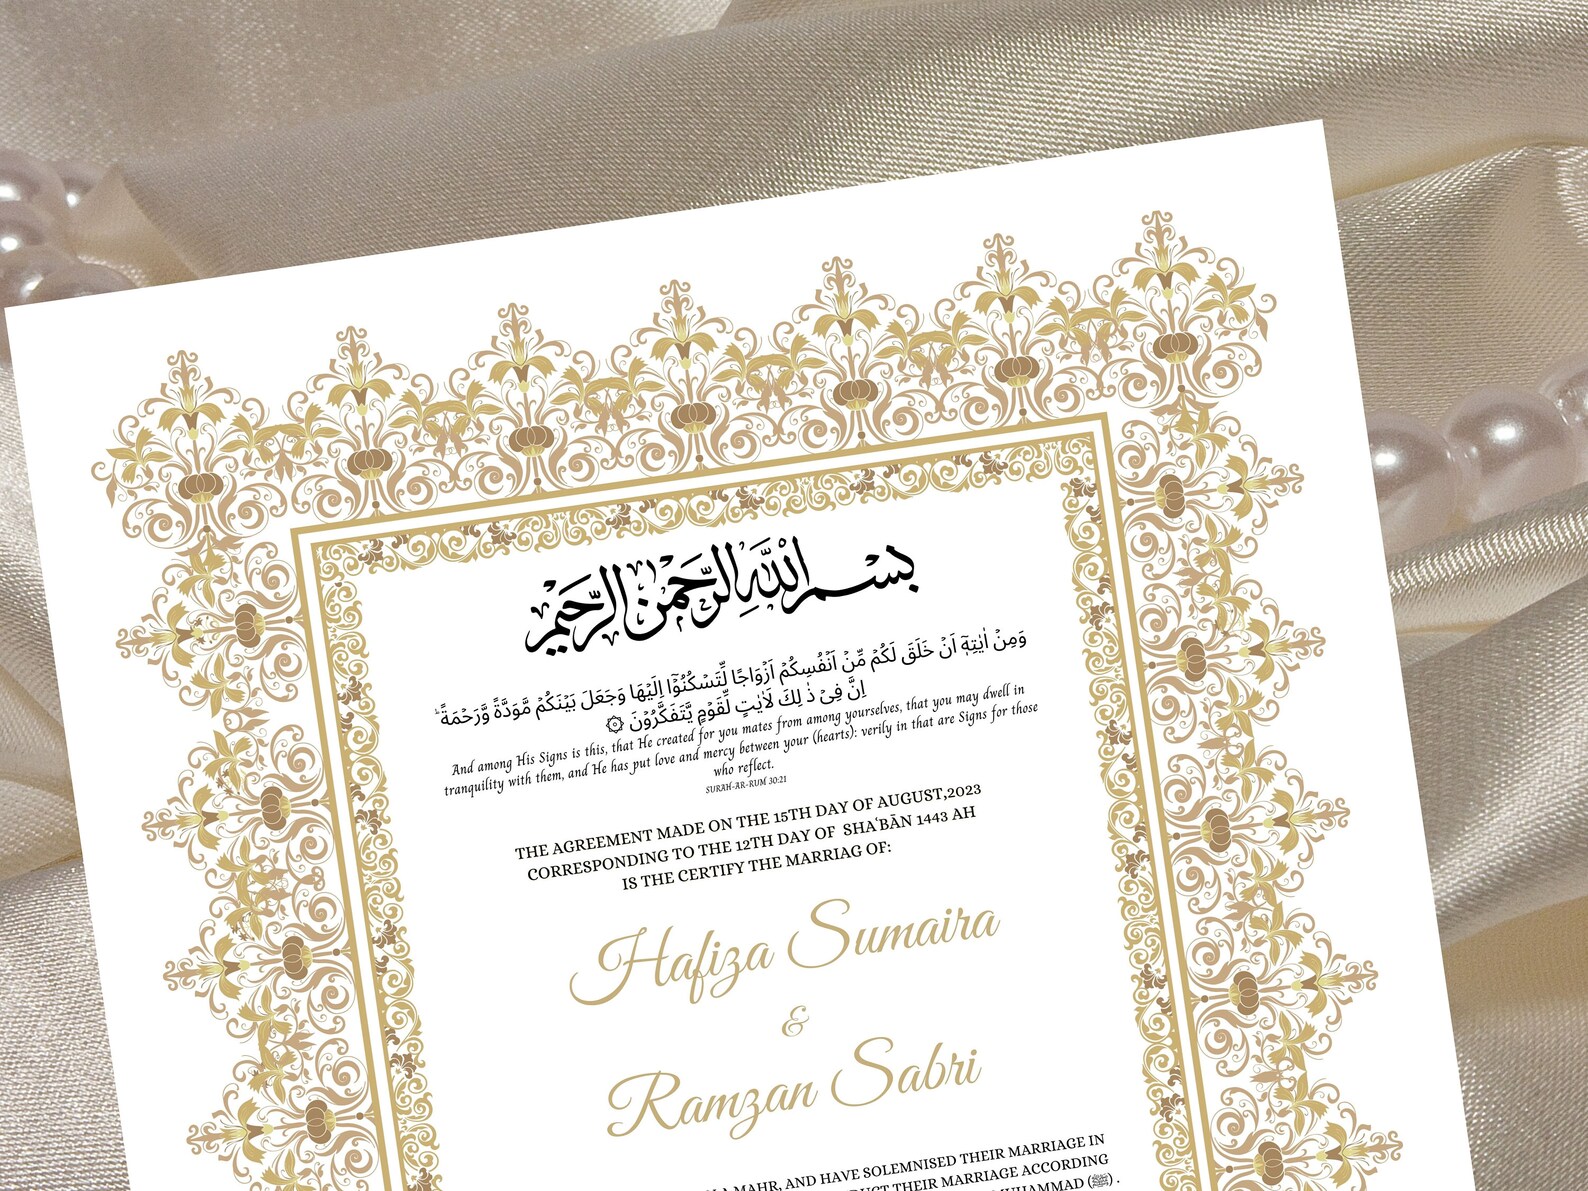 بسم الله الرحمن الرحيم
وَمِنْ اٰيٰتِهٖٓ اَنْ خَلَقَ لَكُمْ مِّنْ اَنْفُسِكُمْ اَزْوَاجًا لِّتَسْكُنُوْٓا اِلَيْهَا وَجَعَلَ بَيْنَكُمْ مَّوَدَّةً وَّرَحْمَةً ؕ
اِنَّ فِىْ ذٰ لِكَ لَاٰيٰتٍ لِّقَوْمٍ يَّتَفَكَّرُوْنَ ۞
And among His Signs is this, that He created for you mates from among yourselves, that you may dwell in
tranquility with them, and He has put love and mercy between your (hearts): verily in that are Signs for those
who reflect.
SURAH-AR-RUM 30:21
THE AGREEMENT MADE ON THE 15TH DAY OF AUGUST,2023
CORRESPONDING TO THE 12TH DAY OF SHA‘BĀN 1443 AH
IS THE CERTIFY THE MARRIAG OF:
Hafiza Sumaira
&
Ramzan Sabri
MAHR, AND HAVE SOLEMNISED THEIR MARRIAGE IN
THEIR MARRIAGE ACCORDING
MUHAMMAD (ﷺ) .